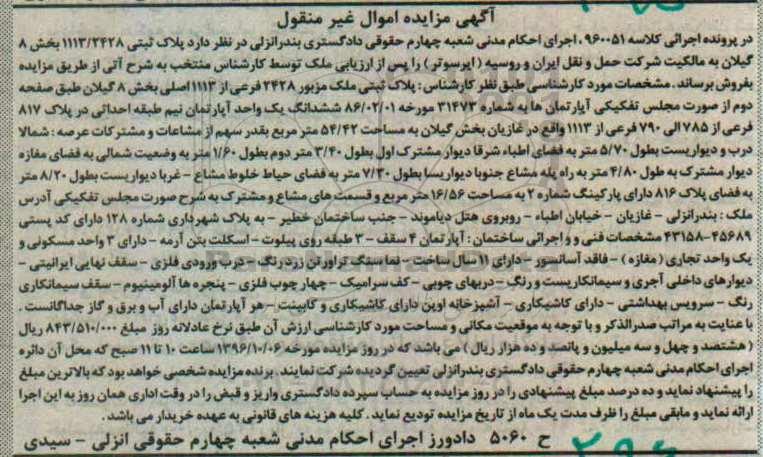 آگهی مزایده اموال غیر منقول
در پرونده اجرائی کلاسه ۹۶۰۰۵۱، اجرای احکام مدنی شعبه چهارم حقوقی دادگستری بندرانزلی در نظر دارد پلاک ثبتی ۱۱۱۳/۲۴۲۸ بخش ۸
گیلان به مالکیت شرکت حمل و نقل ایران و روسیه (ایرسوتر) را پس از ارزیابی ملک توسط کارشناس منتخب به شرح آتی از طریق مزایده
بفروش برساند. مشخصات مورد کارشناسی طبق نظر کارشناس: پلاک ثبتی ملک مزبور ۲۴۲۸ فرعی از ۱۱۱۳ اصلی بخش ۸ گیلان طبق صفحه
دوم از صورت مجلس تفکیکی آپارتمان ها به شماره ۳۱۴۷۳ مورخه ۸۶/۰۲/۰۱ ششدانگ یک واحد آپارتمان نیم طبقه احداثی در پلاک ۸۱۷
فرعی از ۷۸۵ الی ۷۹۰ فرعی از ۱۱۱۳ واقع در غازیان بخش گیلان به مساحت ۵۴/۴۲ متر مربع بقدر سهم از مشاعات و مشترکات عرصه: شمالا
درب و دیواریست بطول ۵/۷۰ متر به فضای اطباء شرقا دیوار مشترک اول بطول ۳/۴۰ متر دوم بطول ۱/۶۰ متر به وضعیت شمالی به فضای مغازه
دیوار مشترک به طول ۴/۸۰ متر به راه پله مشاع جنوبا دیواریسا بطول ۷/۳۰ متر به فضای حیاط خلوط مشاع - غربا دیواریست بطول ۸/۲۰ متر
به فضای پلاک ۸۱۶ دارای پارکینگ شماره ۲ به مساحت ۱۶/۵۶ متر مربع و قسمت های مشاع و مشترک به شرح صورت مجلس تفکیکی آدرس
ملک: بندرانزلی - غازیان - خیابان اطباء - روبروی هتل دیاموند - جنب ساختمان خطیر - به پلاک شهرداری شماره ۱۲۸ دارای کد پستی
۴۳۱۵۸-۴۵۶۸۹ مشخصات فنی و و اجرائی ساختمان: آپارتمان ۴ سقف - ۳ طبقه روی پیلوت - اسکلت بتن آرمه - دارای ۳ واحد مسکونی و
یک واحد تجاری (مغازه) - فاقد آسانسور - دارای ۱۱ سال ساخت - نما سنگ تراورتن زرد رنگ - درب ورودی فلزی - سقف نهایی ایرانیتی -
دیوارهای داخلی آجری و سیمانکاریست و رنگ - دربهای چوبی - کف سرامیک - چهار چوب فلزی - پنجره ها آلومینیوم - سقف سیمانکاری
رنگ - سرویس بهداشتی - دارای کاشیکاری - آشپزخانه اوپن دارای کاشیکاری و کابینت - هر آپارتمان دارای آب و برق و گاز جداگانست.
با عنایت به مراتب صدرالذکر و با توجه به موقعیت مکانی و مساحت مورد کارشناسی ارزش آن طبق نرخ عادلانه روز مبلغ ۸۴۳/۵۱۰/۰۰۰ ریال
(هشتصد و چهل و سه میلیون و پانصد و ده هزار ریال) می باشد که در روز مزایده مورخه ۱۳۹۶/۱۰/۰۶ ساعت ۱۰ تا ۱۱ صبح که محل آن دائره
اجرای احکام مدنی شعبه چهارم حقوقی دادگستری بندرانزلی تعیین گردیده شرکت نمایند. برنده مزایده شخصی خواهد بود که بالاترین مبلغ
را پیشنهاد نماید و ده درصد مبلغ پیشنهادی را در روز مزایده به حساب سپرده دادگستری واریز و قبض را در وقت اداری همان روز به این اجرا
ارائه نماید و مابقی مبلغ را ظرف مدت یک ماه از تاریخ مزایده تودیع نماید. کلیه هزینه های قانونی به عهده خریدار می باشد.
ح ۵۰۶۰ دادورز اجرای احکام مدنی شعبه چهارم حقوقی انزلی - سیدی